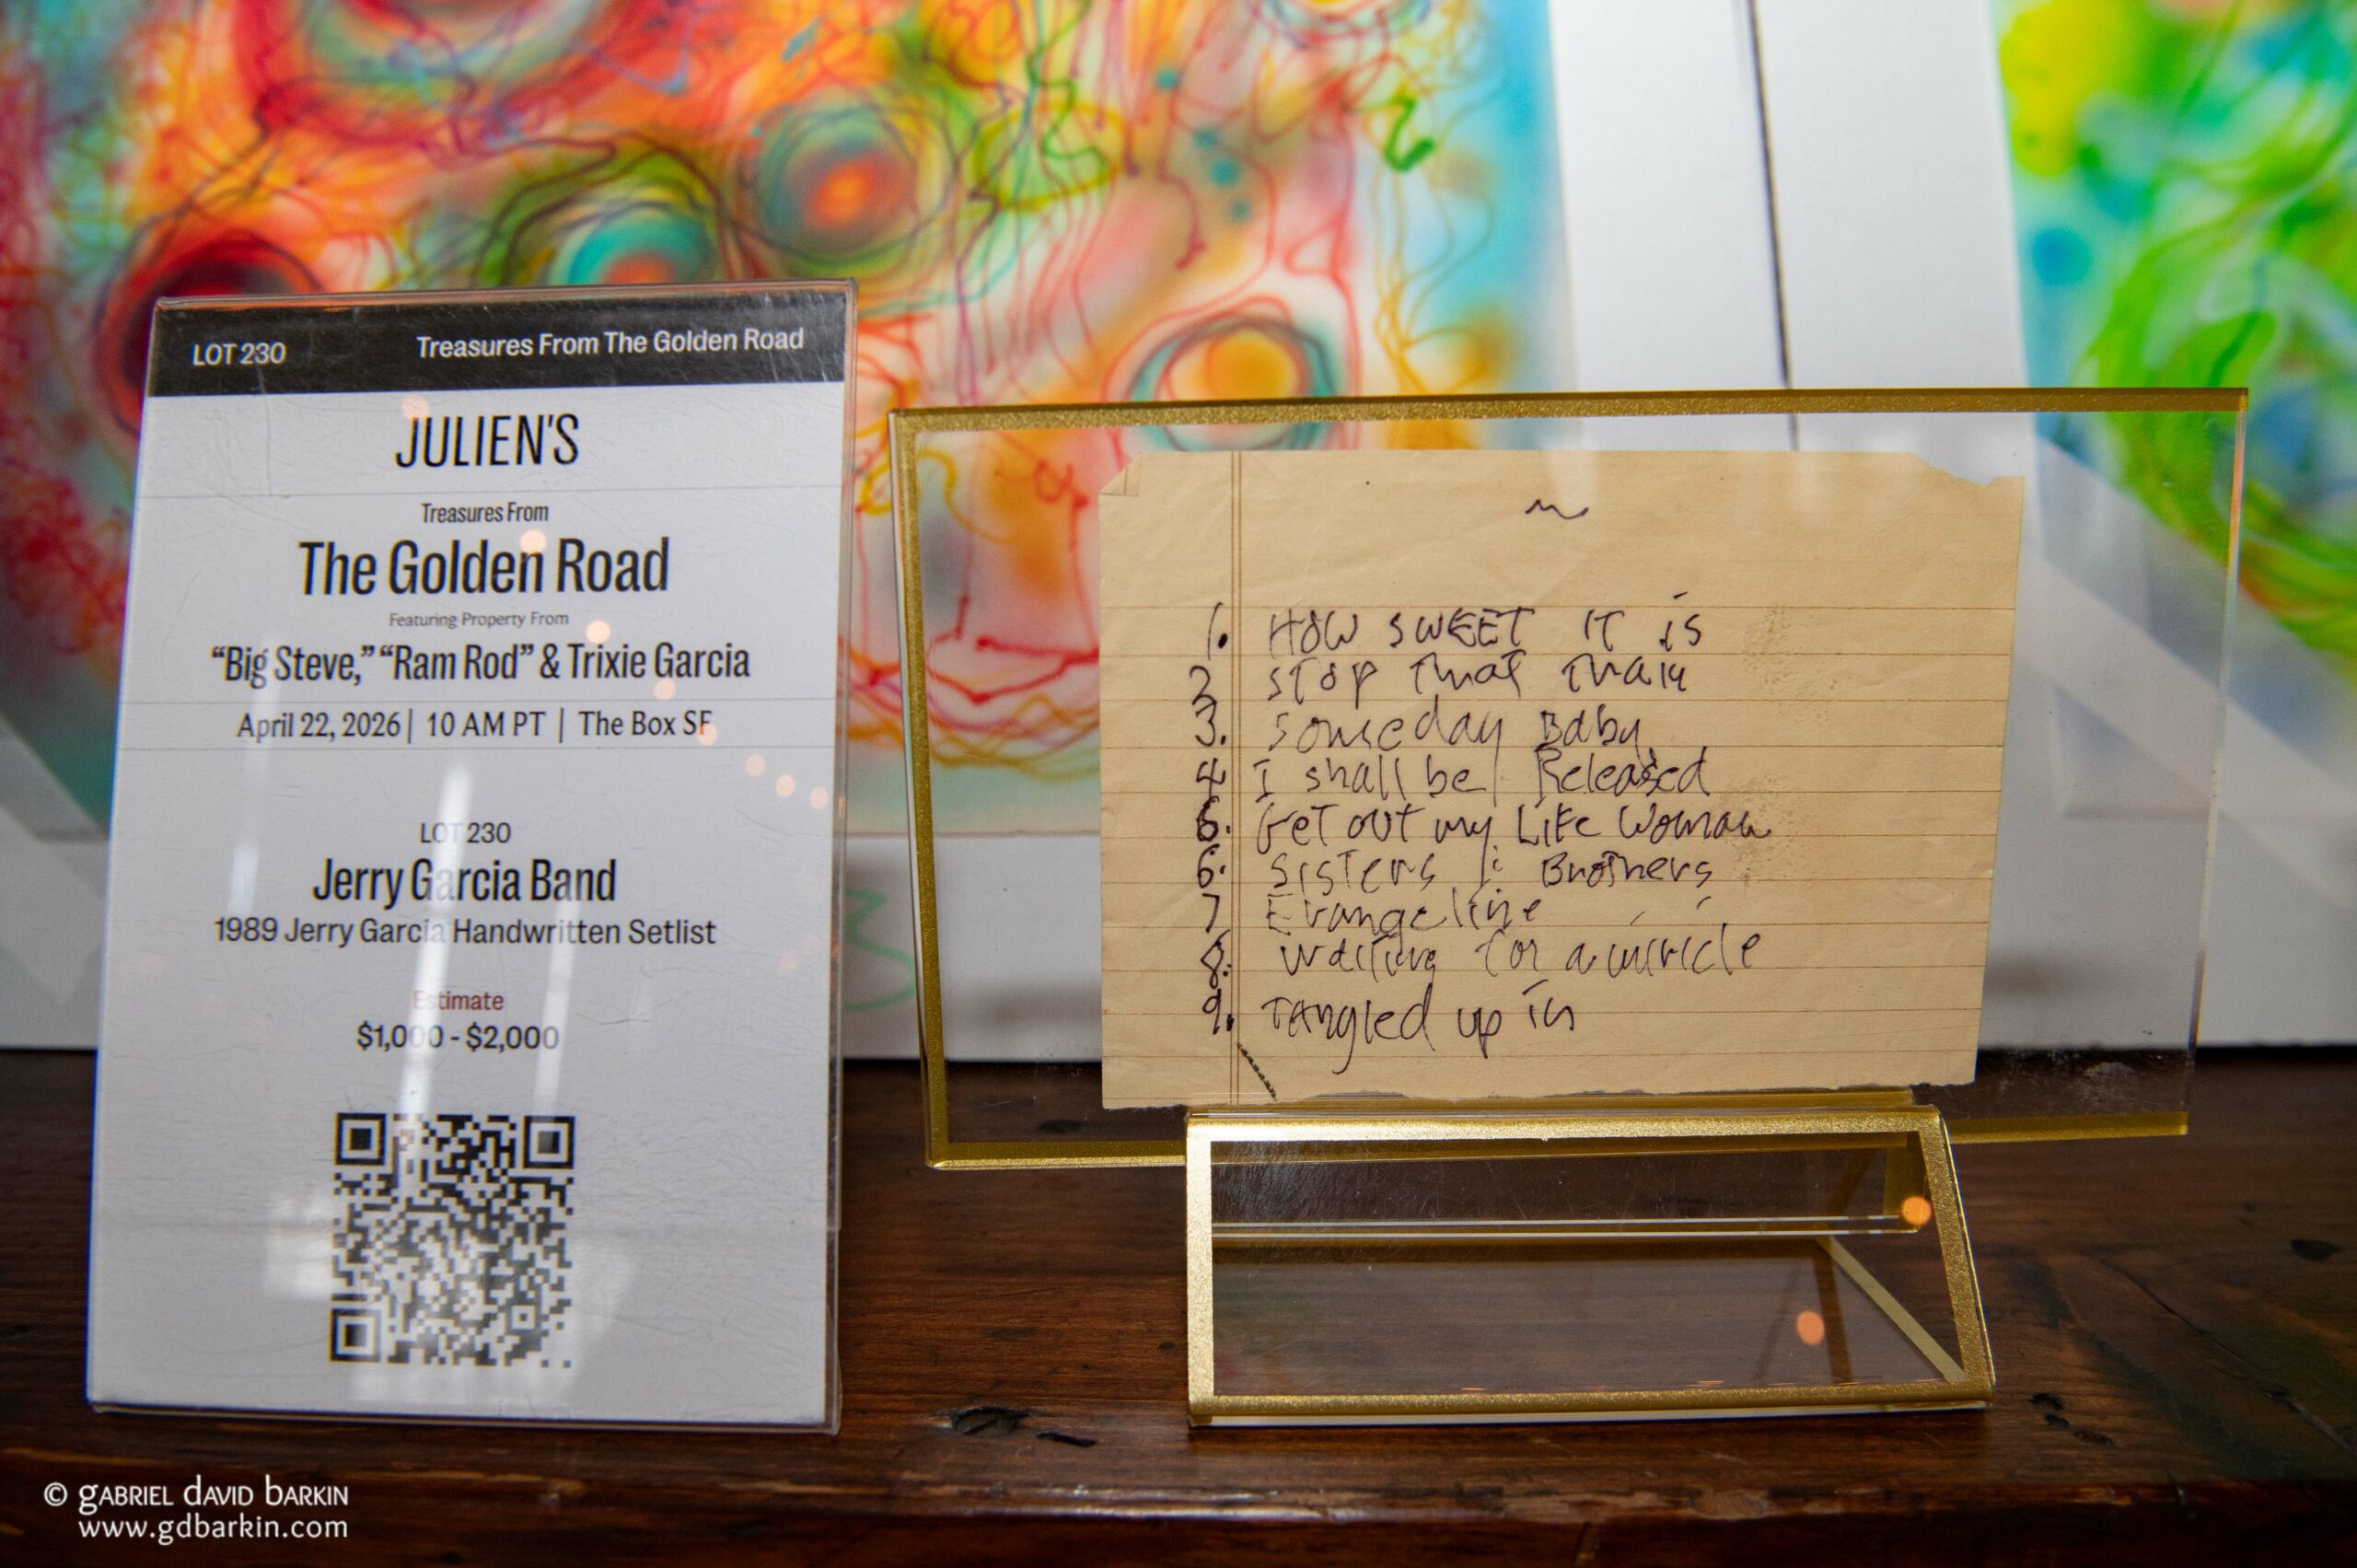 LOT 230 Treasures From The Golden Road
JULIEN'S
Treasures From
The Golden Road
Featuring Property From
“Big Steve,” “Ram Rod” & Trixie Garcia
April 22, 2026 | 10 AM PT | The Box SF
LOT 230
Jerry Garcia Band
1989 Jerry Garcia Handwritten Setlist
Estimate
$1,000 - $2,000
1. HOW SWEET IT iS
2 STOP that
3. Someday Baby
4 I shall be Released
5. Get out my Life Woman
6. Sisters & Brothers
7 Evangeline
8. waiting for a miricle
9. TANgled up in
© GABRIEL DAVID BARKIN
www.gdbarkin.com